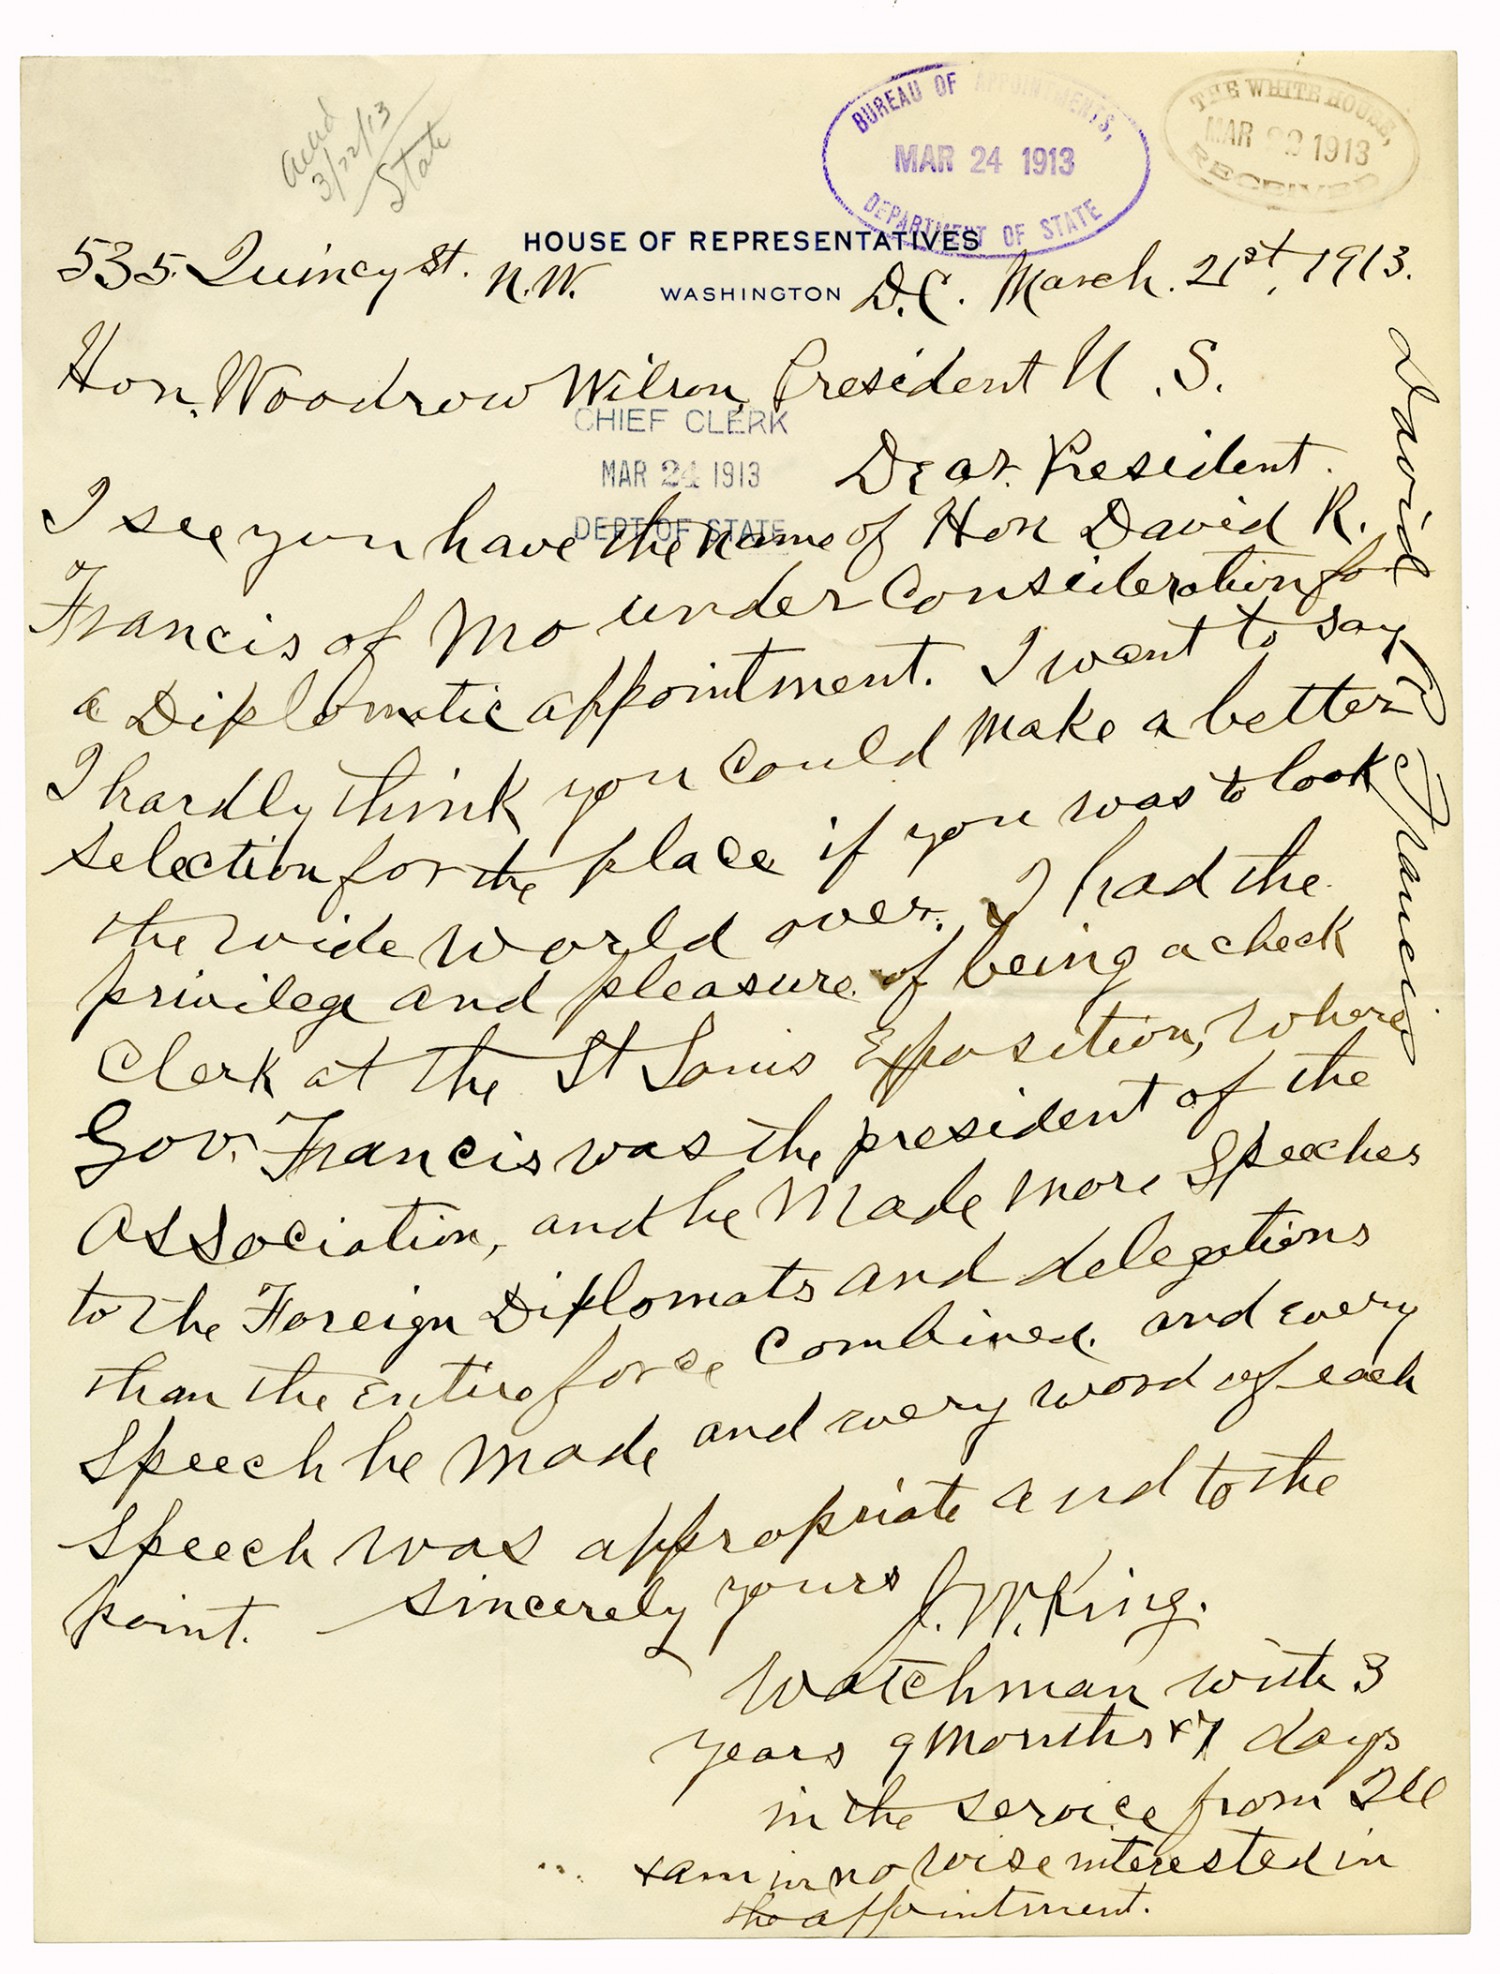 Ackd
3/22/13
State
BUREAU OF APPOINTMENTS,
MAR 24 1913
DEPARTMENT OF STATE
THE WHITE HOUSE,
MAR 22 1913
RECEIVED
HOUSE OF REPRESENTATIVES
535 Quincy St. N.W. WASHINGTON D.C. March. 21st, 1913.
Hon. Woodrow Wilson, President U.S.
CHIEF CLERK
MAR 24 1913
DEPT OF STATE
Dear President.
I see you have the name of Hon David R.
Francis of Mo under Consideration for
a Diplomatic appointment. I want to say
I hardly think you could make a better
selection for the place if you was to look
the wide world over. I had the
privilege and pleasure of being a check
Clerk at the St Louis Exposition, where
Gov. Francis was the president of the
Association, and he Made more Speeches
to the Foreign Diplomats and delegations
than the entire force Combined. and every
Speech he Made and every word of each
Speech was appropriate and to the
point. Sincerely yours J. W. King.
Watchman with 3
years 9 Months & 7 days
in the service from Ill
& am in no wise interested in
the appointment.
David R Francis